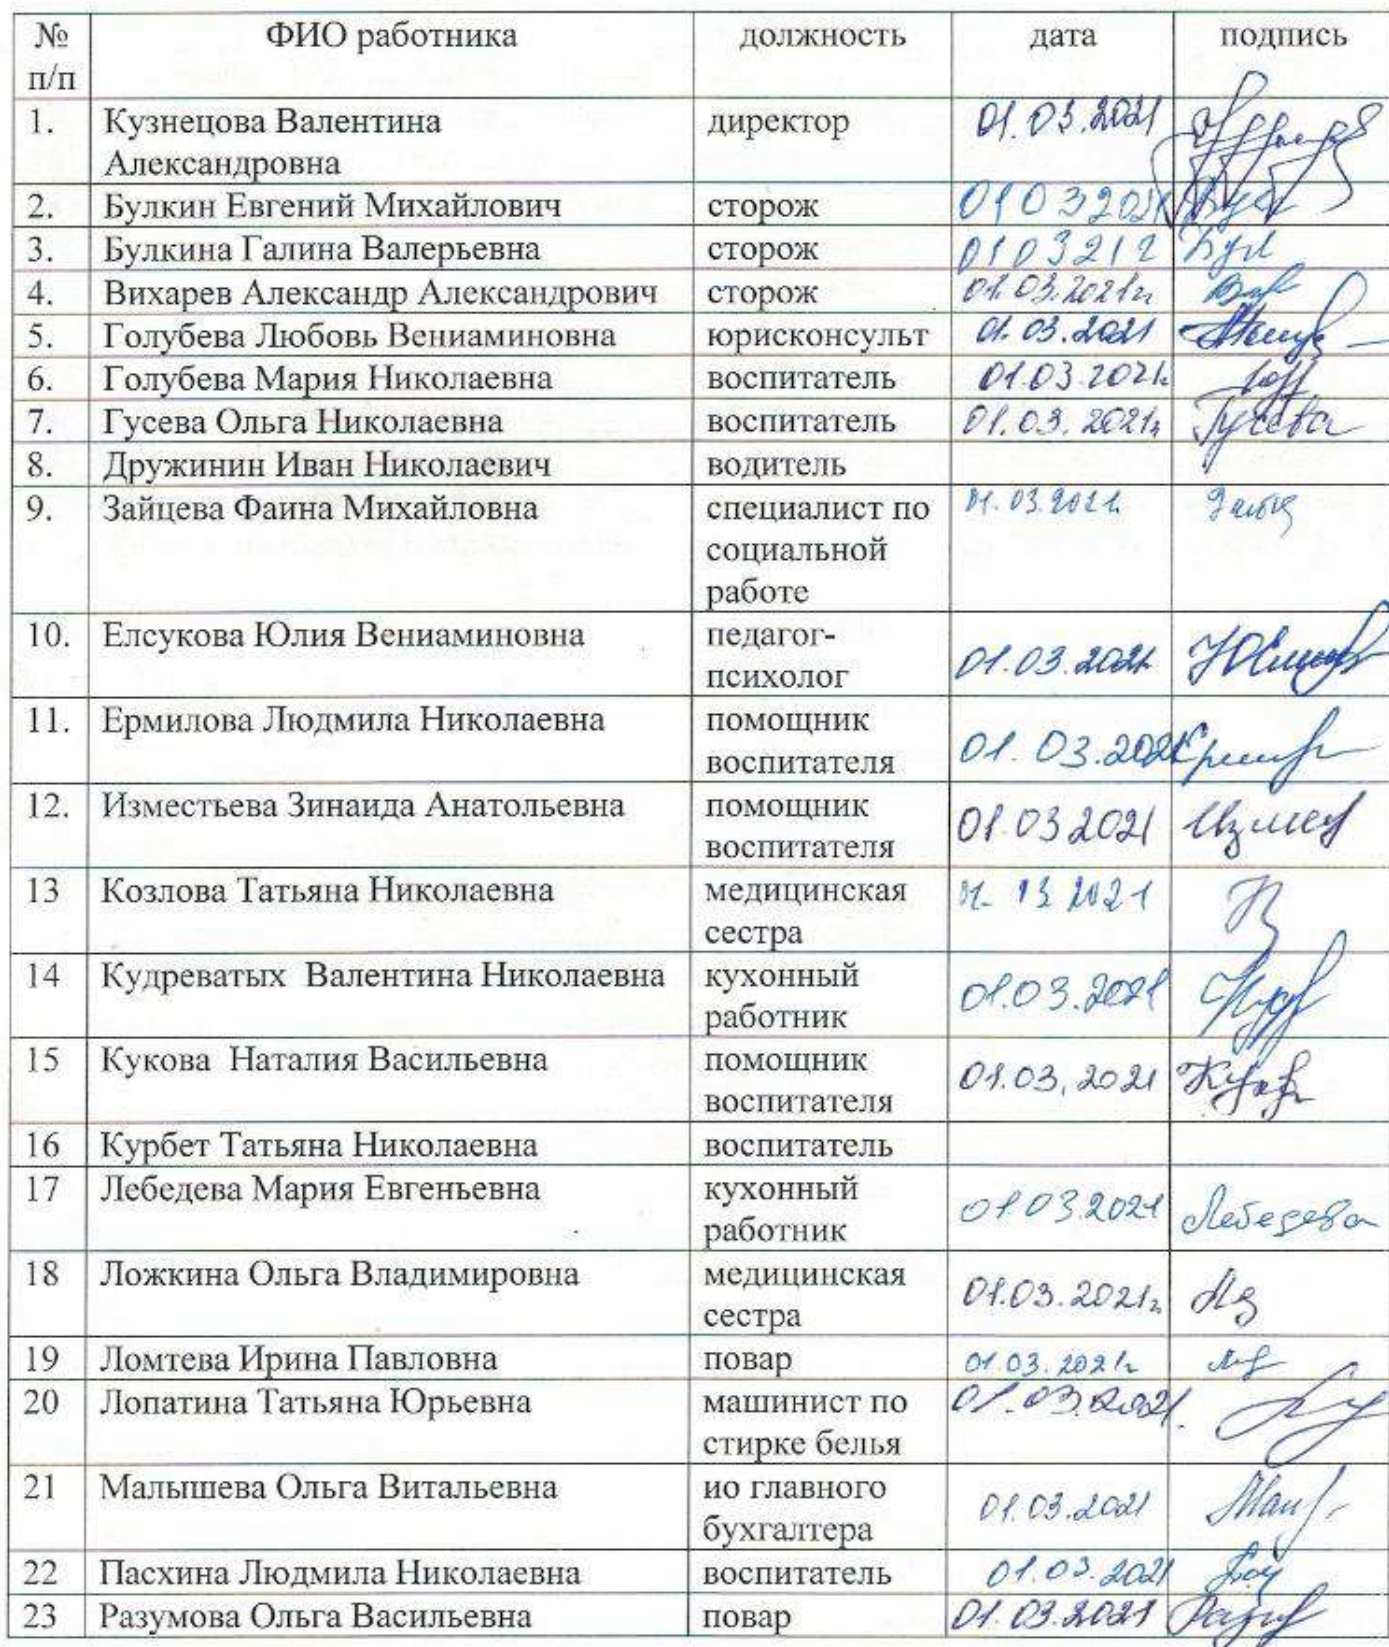 № п/п ФИО работника должность дата подпись
1. Кузнецова Валентина Александровна директор 01.03.2021
2. Булкин Евгений Михайлович сторож 01032021
3. Булкина Галина Валерьевна сторож 010321г Бул
4. Вихарев Александр Александрович сторож 01.03.2021г
5. Голубева Любовь Вениаминовна юрисконсульт 01.03.2021
6. Голубева Мария Николаевна воспитатель 01.03.2021г
7. Гусева Ольга Николаевна воспитатель 01.03.2021г Гусева
8. Дружинин Иван Николаевич водитель
9. Зайцева Фаина Михайловна специалист по социальной работе 01.03.2021г. Зайц
10. Елсукова Юлия Вениаминовна педагог-психолог 01.03.2021г
11. Ермилова Людмила Николаевна помощник воспитателя 01.03.2021
12. Изместьева Зинаида Анатольевна помощник воспитателя 01.03 2021 Измес
13 Козлова Татьяна Николаевна медицинская сестра
14 Кудреватых Валентина Николаевна кухонный работник 01.03.2021
15 Кукова Наталия Васильевна помощник воспитателя 01.03.2021
16 Курбет Татьяна Николаевна воспитатель
17 Лебедева Мария Евгеньевна кухонный работник 01.03.2021 Лебедева
18 Ложкина Ольга Владимировна медицинская сестра 01.03.2021г
19 Ломтева Ирина Павловна повар 01.03.2021г
20 Лопатина Татьяна Юрьевна машинист по стирке белья 01.03.2021.
21 Малышева Ольга Витальевна ио главного бухгалтера 01.03.2021
22 Пасхина Людмила Николаевна воспитатель 01.03.2021
23 Разумова Ольга Васильевна повар 01.03.2021